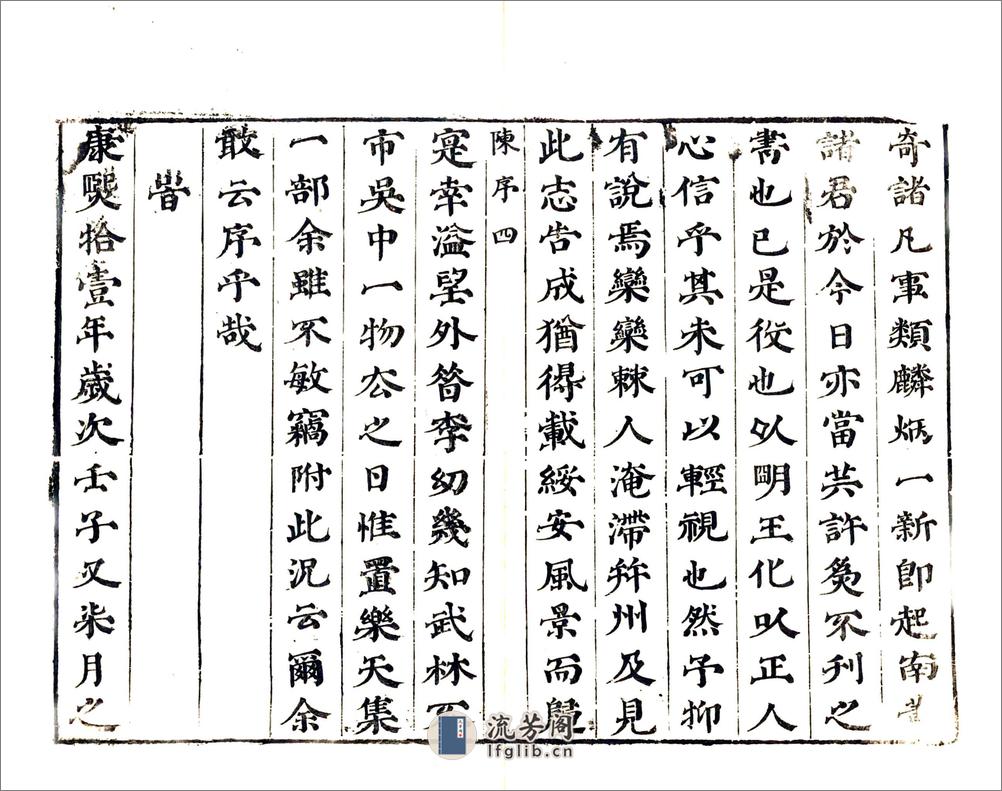 奇諸凡事類麟炳一新即起南
諸君於今日亦當共許為不刊之
書也已是役也以明王化以正人
心信乎其未可以輕視也然予抑
有說焉欒欒棘人淹滯幷州及見
此志告成猶得載綏安風景而歸
陳序 四
寔幸溢望外昔李幼幾知武林
市吳中一物去之日惟置樂天集
一部余雖不敏竊附此況云爾余
敢云序乎哉
峕
康熙拾壹年歲次壬子又柒月之
流芳閣
lfglib.cn